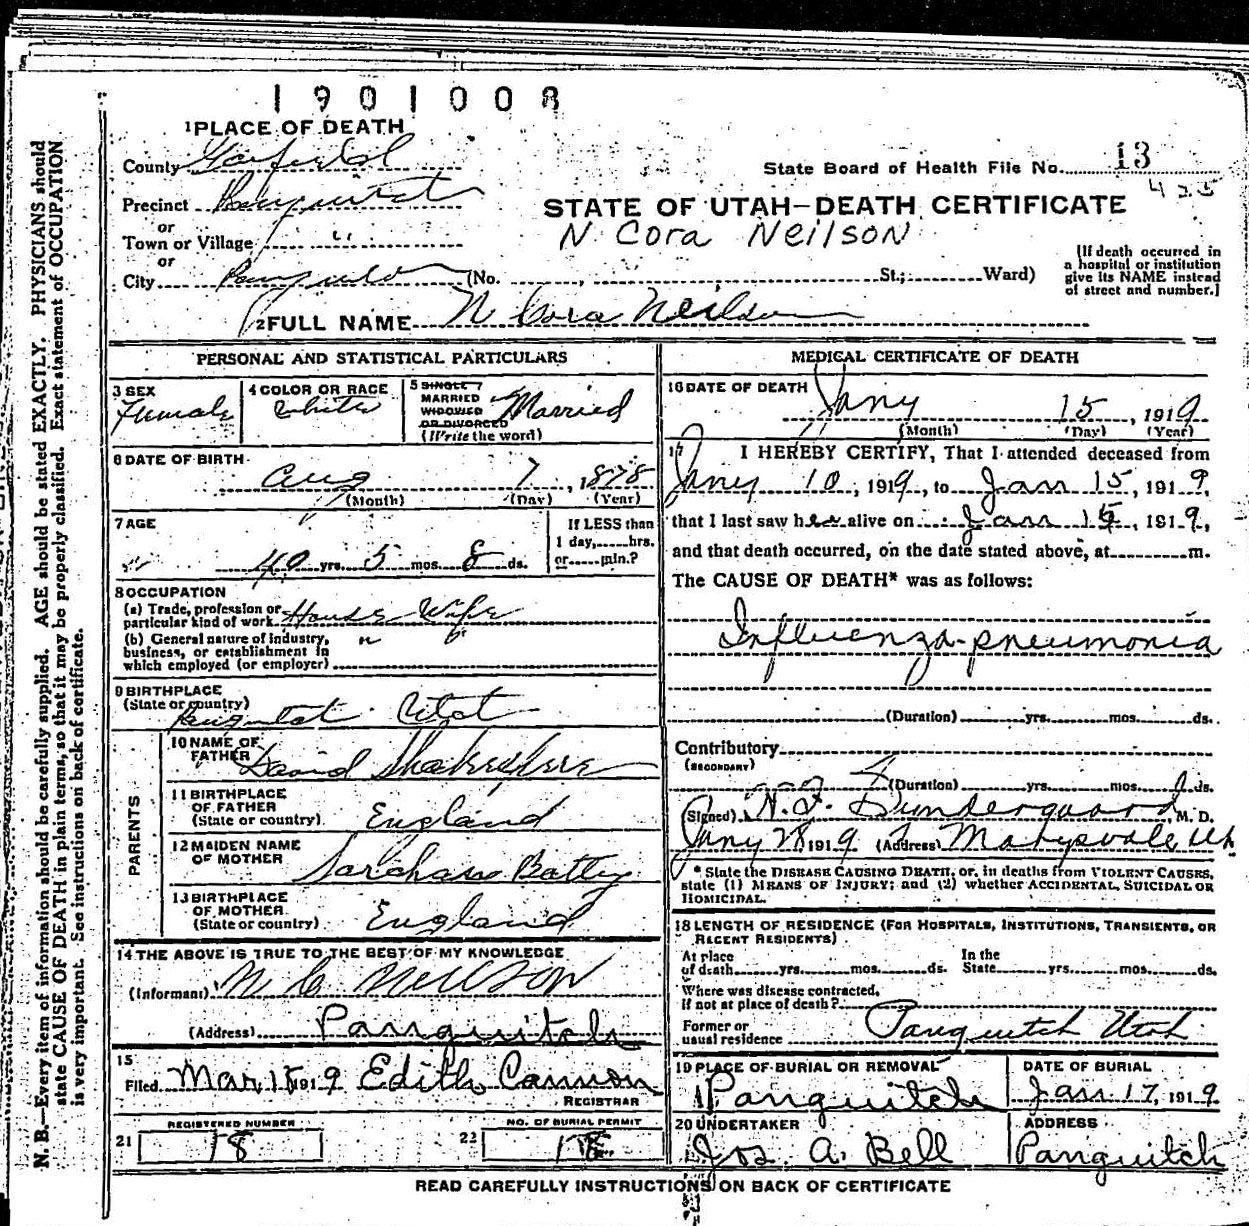 1901008
1 PLACE OF DEATH
County Garfield
State Board of Health File No. 13
425
Precinct Panguitch
STATE OF UTAH—DEATH CERTIFICATE
or
Town or Village "
N Cora Neilson
or
City Panguitch (No. St.; Ward)
[If death occurred in
a hospital or institution
give its NAME instead
of street and number.]
2 FULL NAME N Cora Neilson
PERSONAL AND STATISTICAL PARTICULARS
3 SEX
Female
4 COLOR OR RACE
White
5 SINGLE
MARRIED
WIDOWED
OR DIVORCED
(Write the word)
Married
6 DATE OF BIRTH
Aug 7, 1878
(Month) (Day) (Year)
7 AGE
40 yrs. 5 mos. 8 ds.
If LESS than
1 day, hrs.
or min.?
8 OCCUPATION
(a) Trade, profession or
particular kind of work House Wife
(b) General nature of industry,
business, or establishment in
which employed (or employer)
9 BIRTHPLACE
(State or country)
Panguitch Utah
PARENTS
10 NAME OF
FATHER David Shakespeare
11 BIRTHPLACE
OF FATHER
(State or country) England
12 MAIDEN NAME
OF MOTHER Battey
13 BIRTHPLACE
OF MOTHER
(State or country) England
14 THE ABOVE IS TRUE TO THE BEST OF MY KNOWLEDGE
(Informant) N C Neilson
(Address) Panguitch
15
Filed Mar 15 1919 Edith Cannon
REGISTRAR
21 REGISTERED NUMBER
18
22 NO. OF BURIAL PERMIT
MEDICAL CERTIFICATE OF DEATH
16 DATE OF DEATH
Jany 15, 1919
(Month) (Day) (Year)
17 I HEREBY CERTIFY, That I attended deceased from
Jany 10, 1919, to Jan 15, 1919,
that I last saw her alive on Jan 15, 1919,
and that death occurred, on the date stated above, at m.
The CAUSE OF DEATH* was as follows:
Influenza-pneumonia
(Duration) yrs. mos. ds.
Contributory
(SECONDARY)
(Duration) yrs. mos. ds.
(Signed) M. D.
Jany 28 1919 (Address) Marysvale Ut
* State the DISEASE CAUSING DEATH, or, in deaths from VIOLENT CAUSES,
state (1) MEANS OF INJURY; and (2) whether ACCIDENTAL, SUICIDAL OR
HOMICIDAL.
18 LENGTH OF RESIDENCE (FOR HOSPITALS, INSTITUTIONS, TRANSIENTS, OR
RECENT RESIDENTS)
At place
of death yrs. mos. ds.
In the
State yrs. mos. ds.
Where was disease contracted,
if not at place of death?
Former or
usual residence Panguitch Utah
19 PLACE OF BURIAL OR REMOVAL
Panguitch
DATE OF BURIAL
Jan 17, 1919
20 UNDERTAKER
Jos. A. Bell
ADDRESS
Panguitch
READ CAREFULLY INSTRUCTIONS ON BACK OF CERTIFICATE
N. B.—Every item of information should be carefully supplied. AGE should be stated EXACTLY. PHYSICIANS should
state CAUSE OF DEATH in plain terms, so that it may be properly classified. Exact statement of OCCUPATION
is very important. See instructions on back of certificate.